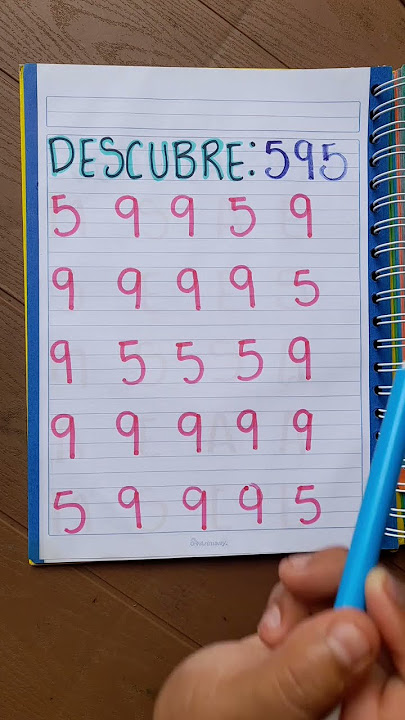 DESCUBRE: 595
5 9 9 5 9
9 9 9 9 5
9 5 5 5 9
9 9 9 9 9
5 9 9 9 5